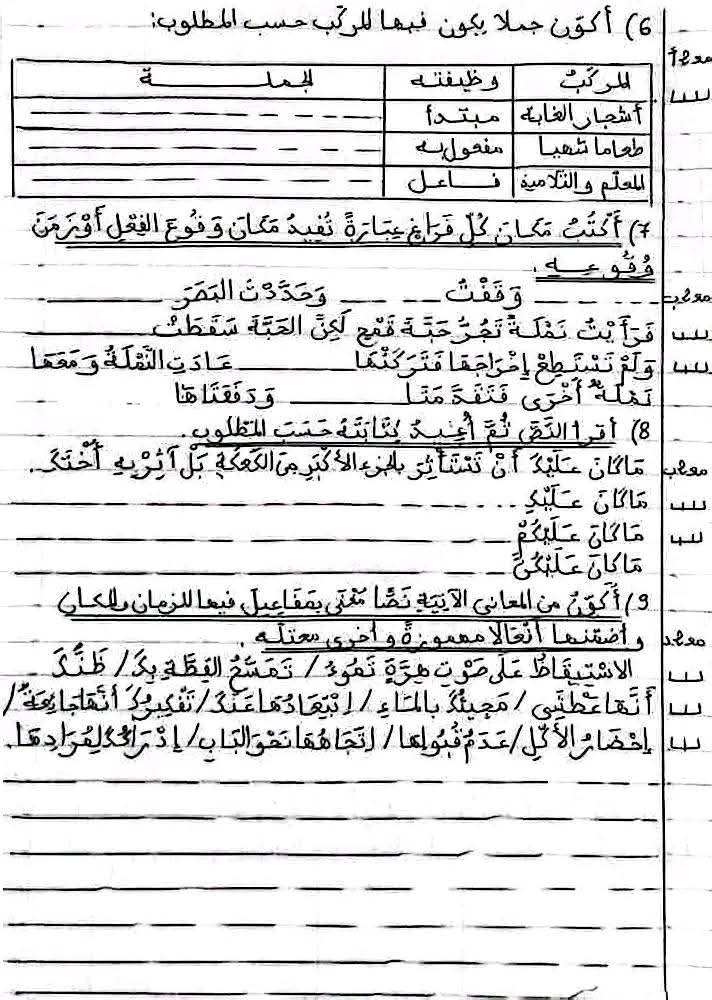 6) أكوّن جملا يكون فيها المركّب حسب المطلوب:
مع1أ
المركبُ وظيفته الجملة
أشجار الغابة مبتدأ
طعاما شهيا مفعول به
المعلّم والتلاميذ فاعل
7) أَكْتُبُ مَكَانَ كُلِّ فَرَاغٍ عِبَارَةً تُفِيدُ مَكَانَ وَقُوعَ الفِعْلِ أَوْ زَمَنَ
وُقُوعِهِ.
مع1ب
وَقَفْتُ وَحَدَّدْتُ البَصَرَ
فَرَأَيْتُ نَمْلَةً تَجُرُّ حَبَّةَ قَمْحٍ لَكِنَّ الحَبَّةَ سَقَطَتْ
وَلَمْ تَسْتَطِعْ إِخْرَاجَهَا فَتَرَكَتْهَا عَادَتِ النَّمْلَةُ وَمَعَهَا
نَمْلَةٌ أُخْرَى فَتَقَدَّمَتَا وَدَفَعَتَاهَا
8) أقرأ النصّ ثُمَّ أُعِيدُ كِتَابَتَهُ حَسَبَ المَطْلُوبِ.
مَاكَانَ عَلَيْكَ أَنْ تَسْتَأْثِرَ بالجزءِ الأكْبَرِ مِنَ الكَعْكَةِ بَلْ آثِرْ بِهِ أُخْتَكَ.
مَاكَانَ عَلَيْكِ
مَاكَانَ عَلَيْكُمْ
مَاكَانَ عَلَيْكُنَّ
9) أُكَوّنُ من المعاني الآتِيَةِ نَصًّا مُغْنًى بِمَفَاعِيلَ فيها للزمان والمكان
وأضمّنها أَفْعَالا مهموزةً وأخرى معتلّه.
الاسْتِيقَاظُ عَلَى صَوْتِ هِرَّةٍ تَمُوءُ / تَمَسُّحُ القِطَّةِ بِكَ / ظَنُّكَ
أَنَّهَا عَطْشَى / مَجِيئُكَ بالمَاءِ / اِبْتِعَادُهَا عَنْكَ / تَفْكِيرُكَ أَنَّهَا جَائِعَةٌ /
إِحْضَارُ الأَكْلِ / عَدَمُ قُبُولِهَا / اِتِّجَاهُهَا نَحْوَ البَابِ / إِدْرَاكُكَ لِمُرَادِهَا.